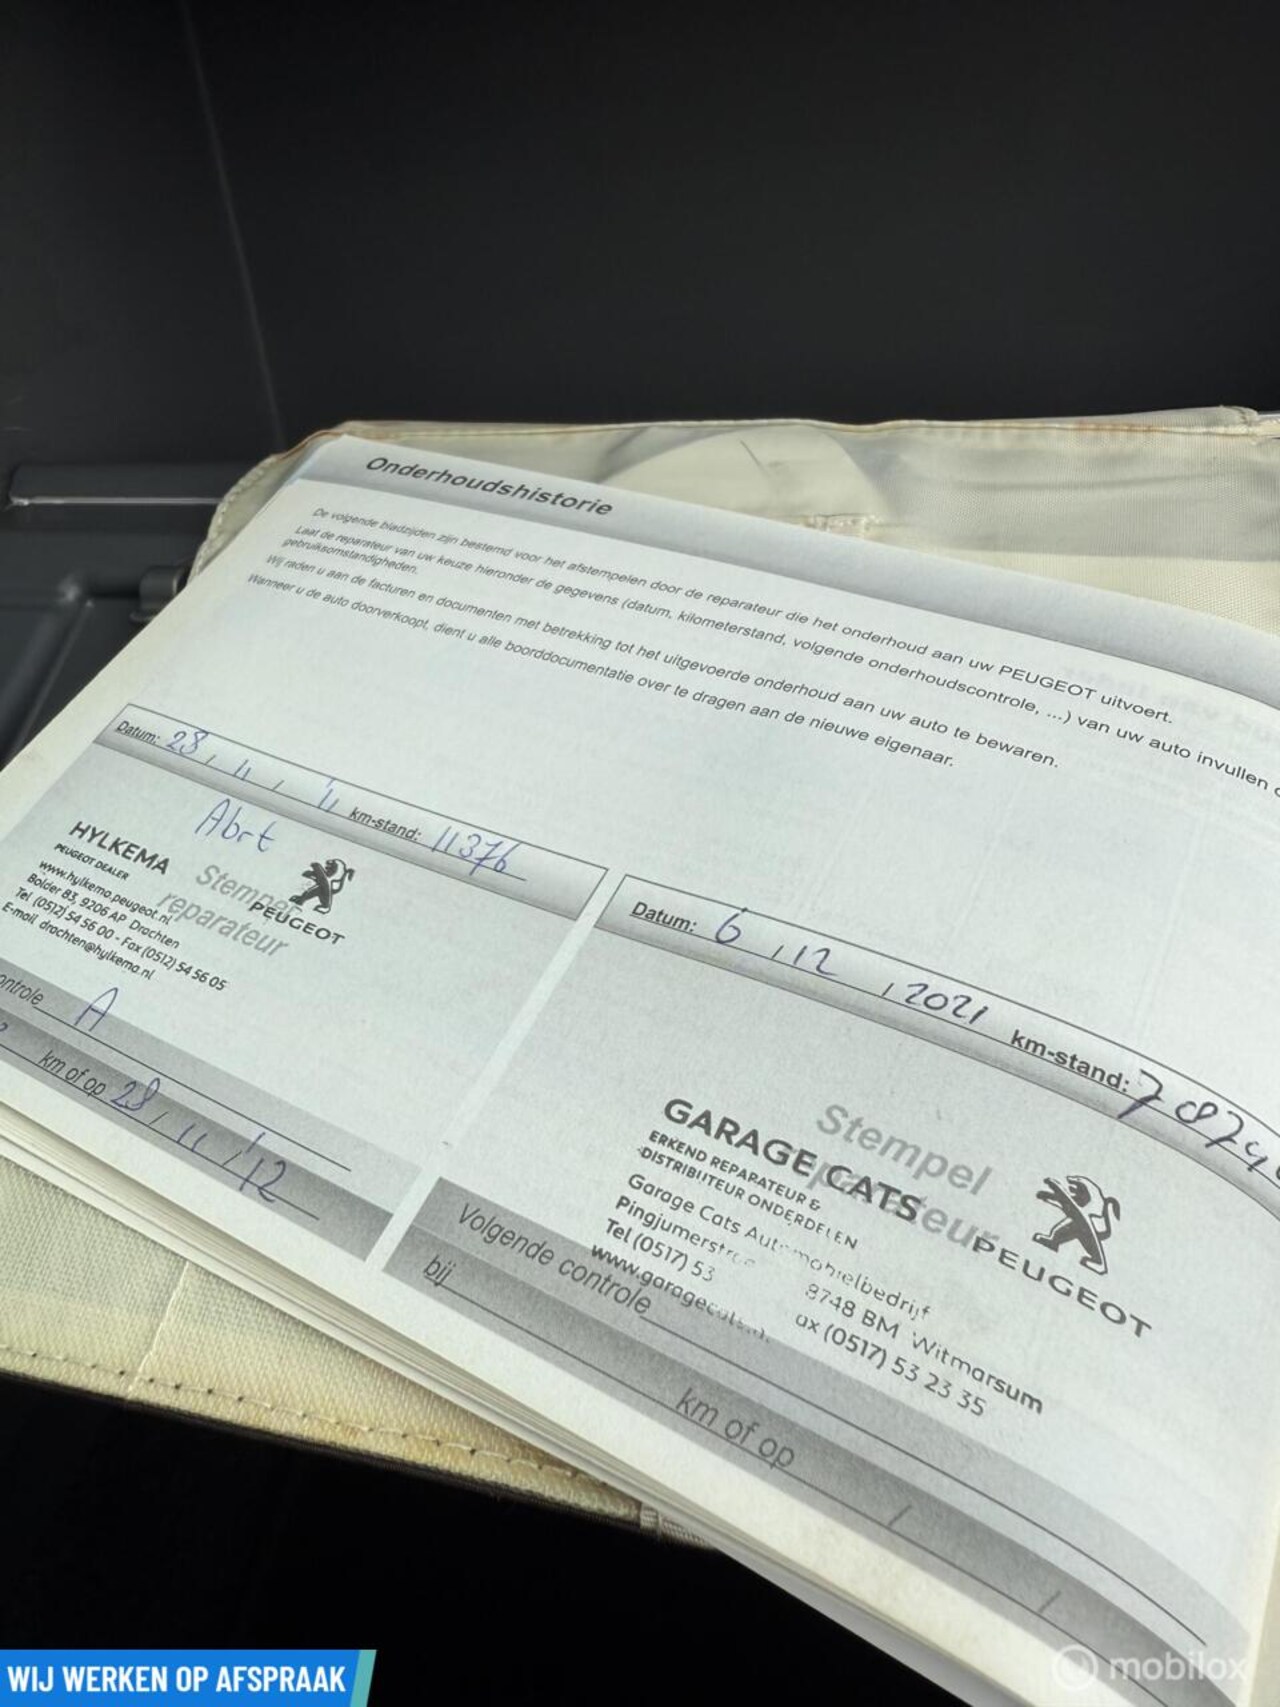 Onderhoudshistorie
De volgende bladzijden zijn bestemd voor het afstempelen door de reparateur die het onderhoud aan uw PEUGEOT uitvoert.
Laat de reparateur van uw keuze hieronder de gegevens (datum, kilometerstand, volgende onderhoudscontrole, ...) van uw auto invullen
gebruiksomstandigheden.
Wij raden u aan de facturen en documenten met betrekking tot het uitgevoerde onderhoud aan uw auto te bewaren.
Wanneer u de auto doorverkoopt, dient u alle boorddocumentatie over te dragen aan de nieuwe eigenaar.
Datum: 28, 11, 11 km-stand: 11376
Abrt
HYLKEMA
PEUGEOT DEALER
www.hylkema.peugeot.nl
Bolder 83, 9206 AP Drachten
Tel (0512) 54 56 00 - Fax (0512) 54 56 05
E-mail drachten@hylkema.nl
Stempel
reparateur
PEUGEOT
ontrole A
km of op 28, 11, 12
Datum: 6, 12, 2021 km-stand: 7874
Stempel
reparateur
GARAGE CATS
ERKEND REPARATEUR &
DISTRIBUTEUR ONDERDELEN
Garage Cats Automobielbedrijf
Pingjumerstr 8748 BM Witmarsum
Tel (0517) 53 ax (0517) 53 23 35
www.garagecats.n
PEUGEOT
Volgende controle
bij km of op / /
WIJ WERKEN OP AFSPRAAK
mobilox